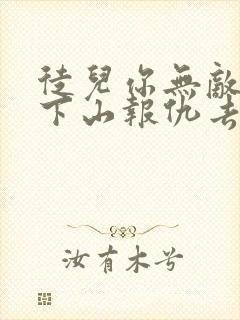 徒兒你無敵
下山報仇去
汝有木兮